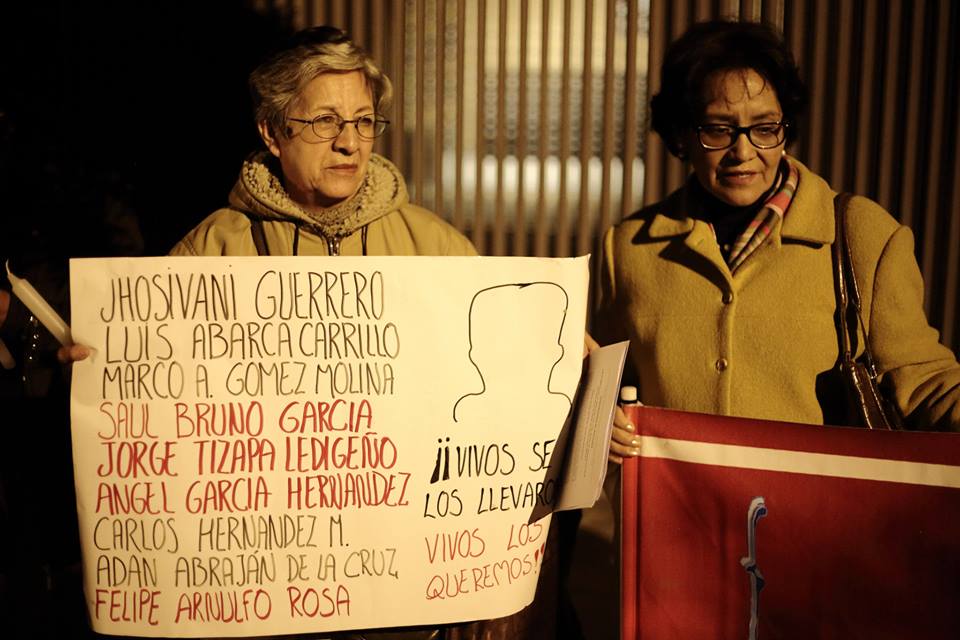 JHOSIVANI GUERRERO
LUIS ABARCA CARRILLO
MARCO A. GOMEZ MOLINA
SAUL BRUNO GARCIA
JORGE TIZAPA LEDIGEÑO
ANGEL GARCIA HERNANDEZ
CARLOS HERNANDEZ M.
ADAN ABRAJÁN DE LA CRUZ
FELIPE ARNULFO ROSA
¡¡VIVOS SE
LOS LLEVARO
VIVOS LOS
QUEREMOS!!